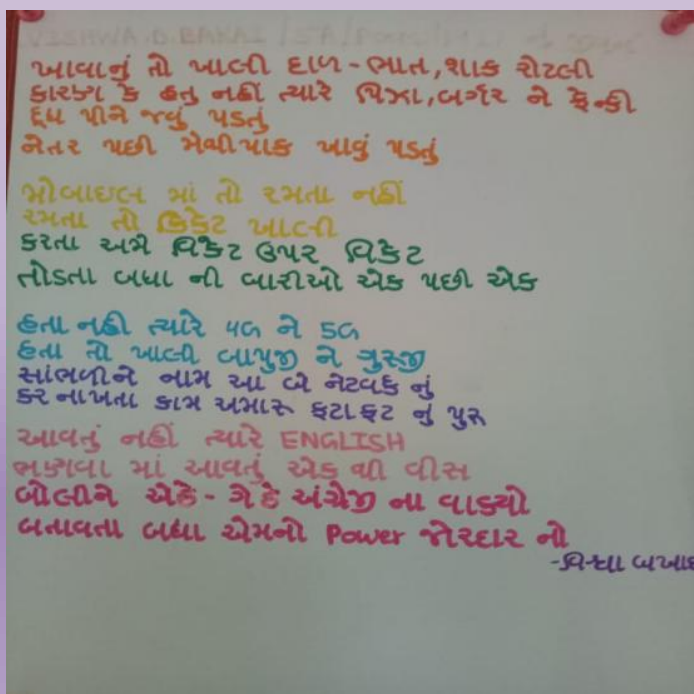 ખાવાનું તો ખાલી દાળ - ભાત, શાક રોટલી
કારણ કે હતુ નહીં ત્યારે પિઝા, બર્ગર ને ફ્રેન્કી
દૂધ પીને જવું પડતું
નેતર પછી મેથીપાક ખાવું પડતું
મોબાઇલ માં તો રમતા નહીં
રમતા તો ક્રિકેટ ખાલી
કરતા અમે વિકેટ ઉપર વિકેટ
તોડતા બધા ની બારીઓ એક પછી એક
હતા નહી ત્યારે 4G ને 5G
હતા તો ખાલી બાપુજી ને ગુરુજી
સાંભળીને નામ આ બે નેટવર્ક નું
કર નાખતા કામ અમારૂ ફટાફટ નું પુરૂ
આવતું નહીં ત્યારે ENGLISH
ભણવા માં આવતું એક થી વીસ
બોલીને એકે - ગેકે અંગ્રેજી ના વાક્યો
બતાવતા બધા એમનો Power જોરદાર નો